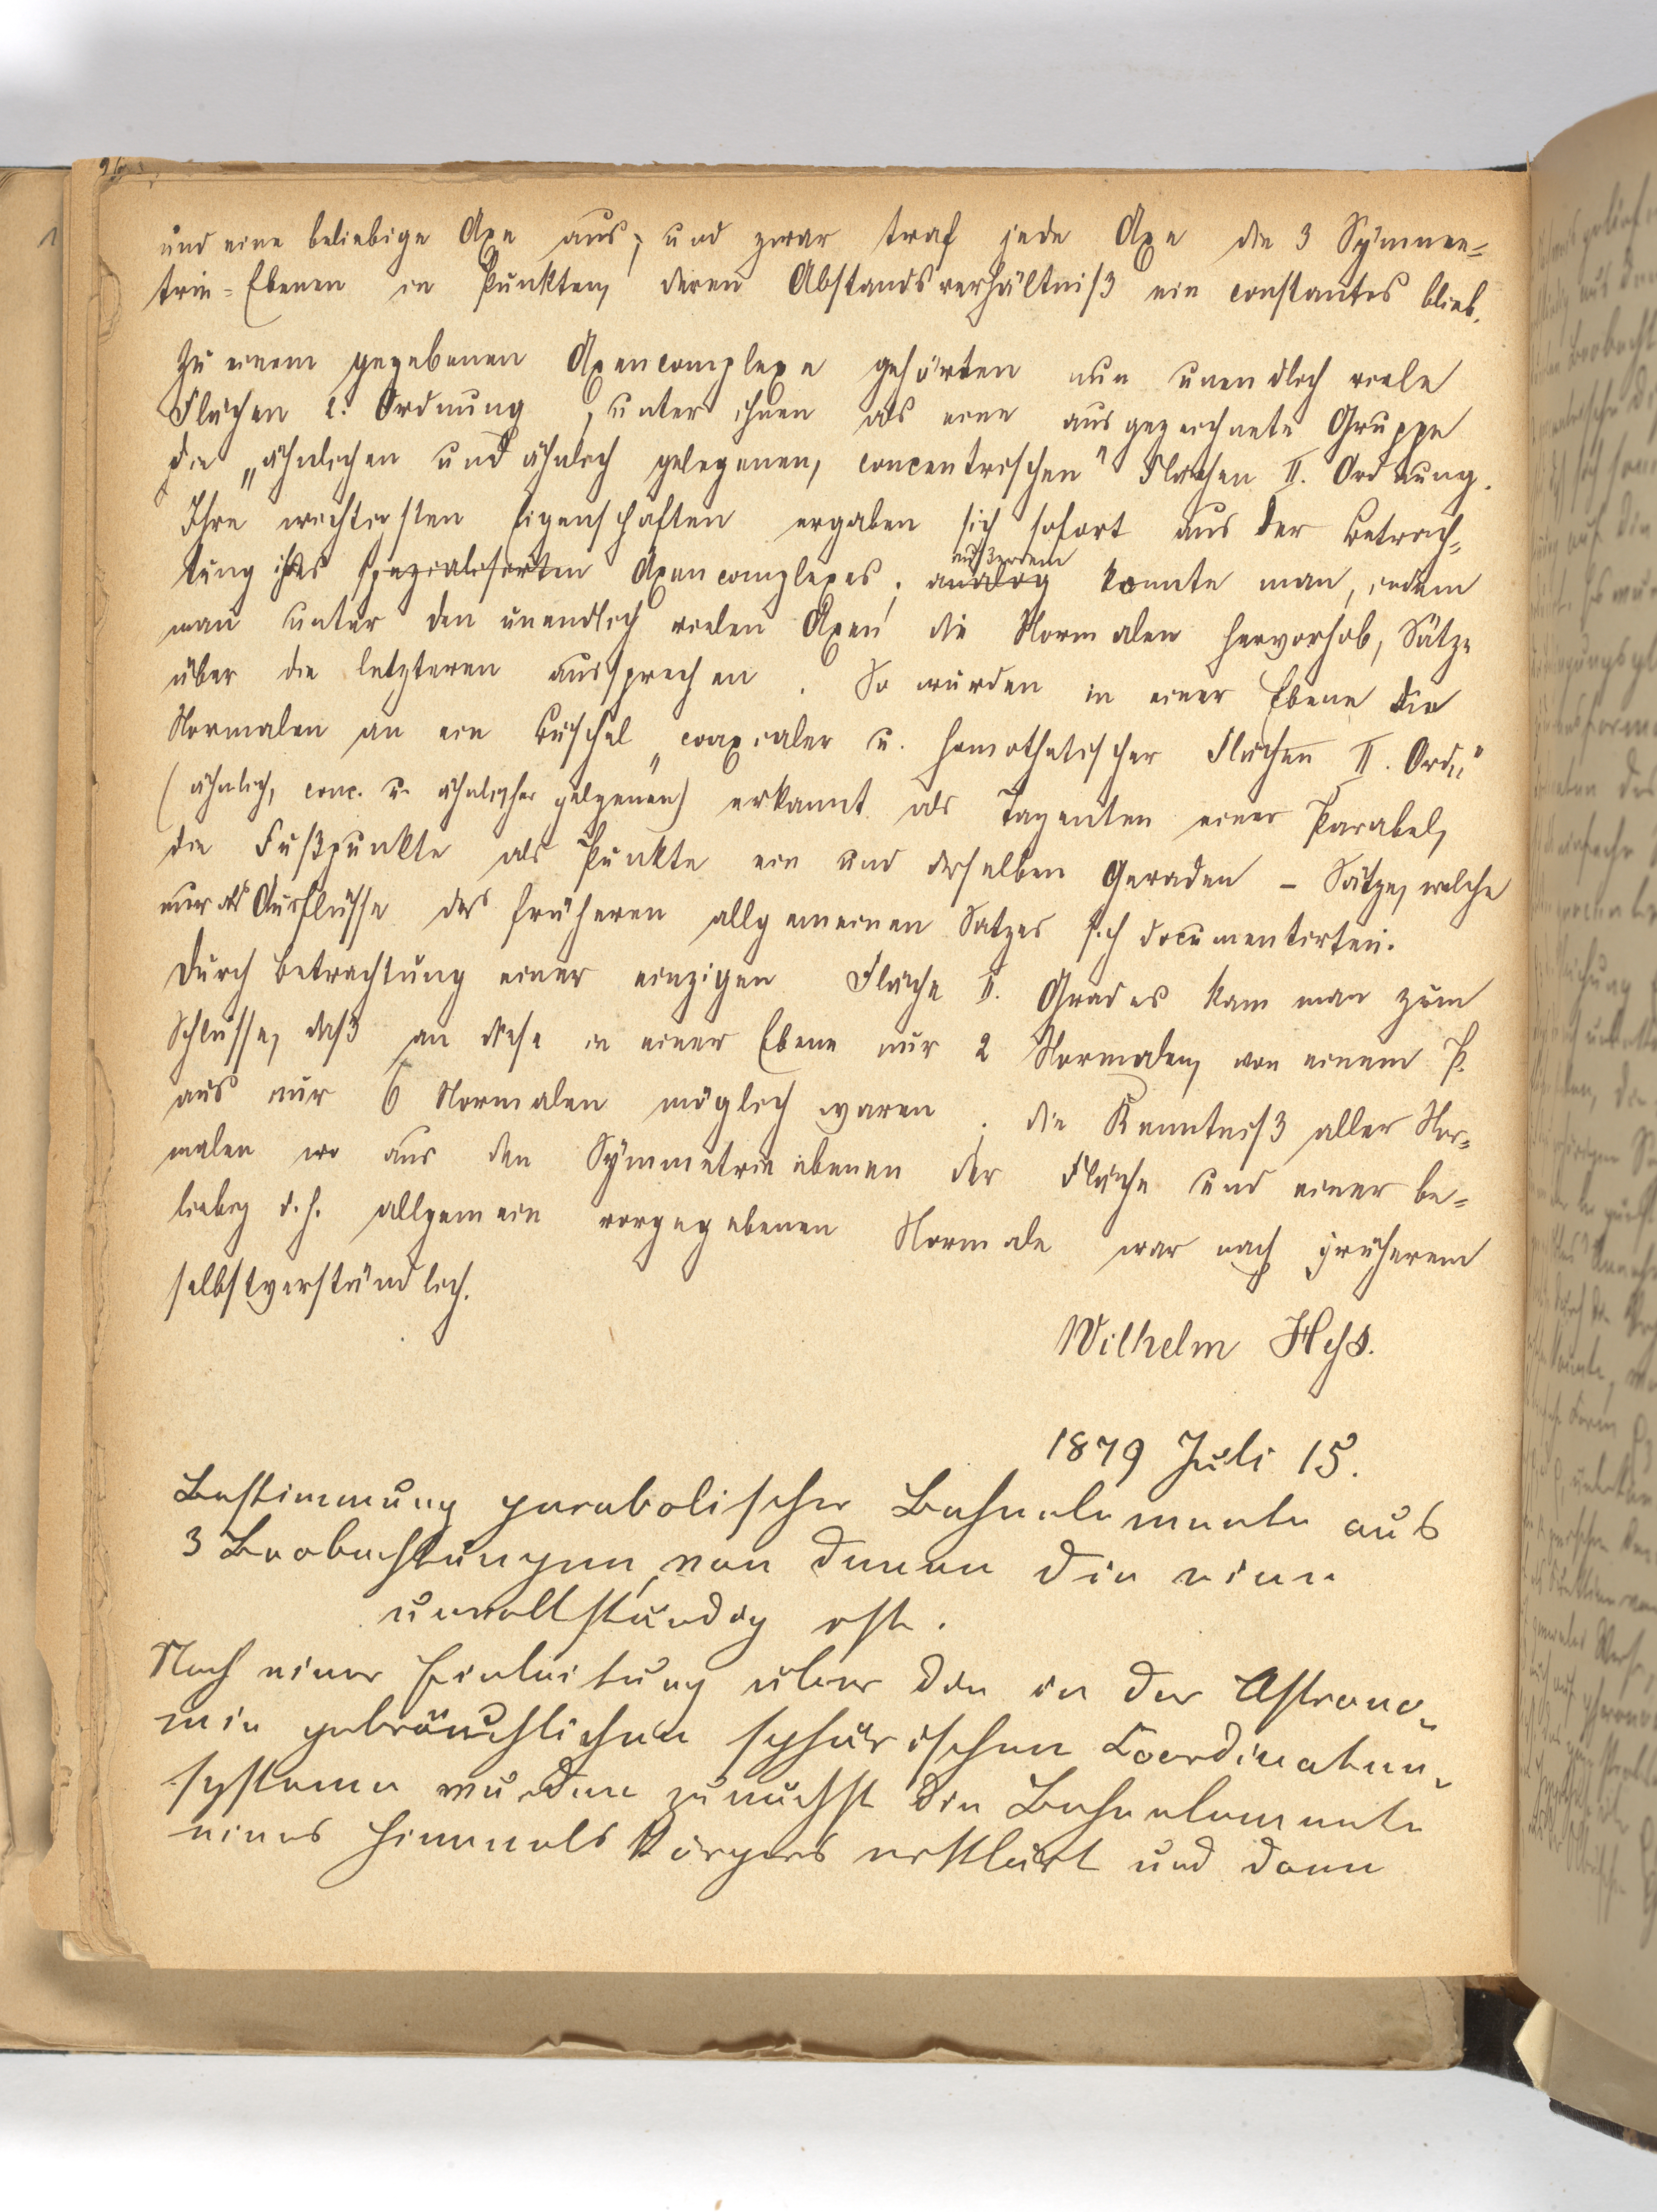 und eine beliebige Axe aus; und zwar traf jede Axe die 3 Symme=
trie=Ebenen in Punkten, deren Abstandsverhältniß ein constantes blieb.
Zu einem gegebenen Axencomplexe gehörten nun unendlich viele
Flächen 2. Ordnung, unter ihnen als eine ausgezeichnete Gruppe
die „ähnlichen und ähnlich gelegenen, concentrischen“ Flächen II. Ordnung.
Ihre wichtigsten Eigenschaften ergaben sich sofort aus der Betrach=
tung ihres spezialisirten Axencomplexes; analog außerdem konnte man, indem
man unter den unendlich vielen Axen die Normalen hervorhob, Sätze
über die letzteren aussprechen. So wurden in einer Ebene die
Normalen an ein Büschel „coaxialer u. homothetischer Flächen II. Ord.“
(ähnlich, conc. u. ähnlicher gelgenen) erkannt als Tagenten einer Parabel,
die Fußpunkte als Punkte ein und derselben Geraden – Sätze, welche
nur als Ausflüsse des früheren allgemeinen Satzes sich documentirten.
Durch Betrachtung einer einzigen Fläche II. Grades kam man zum
Schlusse, daß an diese in einer Ebene nur 2 Normalen, von einem P.
aus nur 6 Normalen möglich waren; die Kenntniß aller Nor=
malen aus den Symmetrieebenen der Fläche und einer be=
liebig d. h. allgemein vorgegebenen Normale war nach früherem
selbstverständlich.
Wilhelm Heß.
1879 Juli 15.
Bestimmung parabolischer Bahnelemente aus
3 Beobachtungen, von denen die eine
unvollständig ist.
Nach einer Einleitung über die in der Astrono=
mie gebräuchlichen sphärischen Coordinaten=
systeme wurden zunächst die Bahnelemente
eines Himmelskörpers erklärt und dann